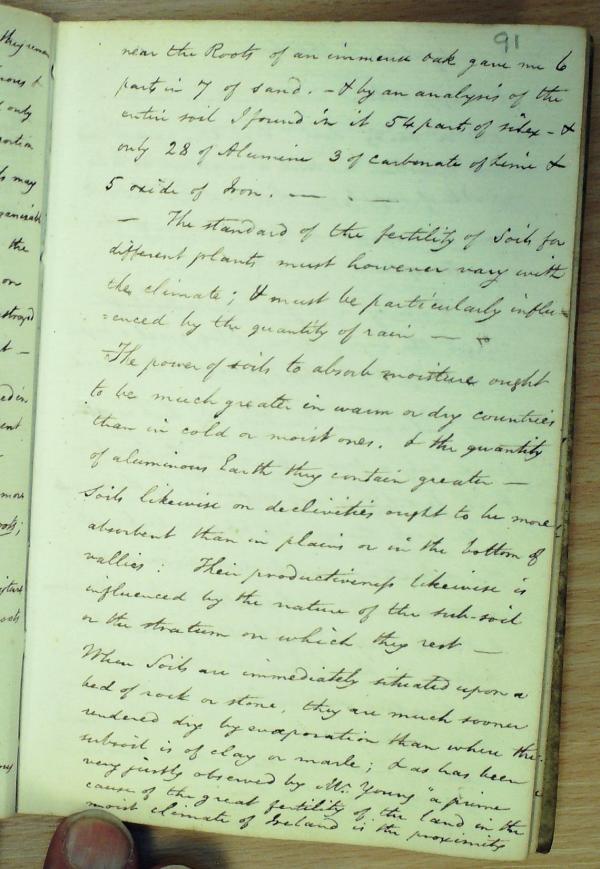 91
near the Roots of an immense oak gave me 6
parts in 7 of sand. - & by an analysis of the
entire soil I found in it 54 parts of silex - &
only 28 of Alumine 3 of carbonate of Lime &
5 oxide of Iron. — - —
— The standard of the fertility of Soils for
different plants must however vary with
the climate; & must be particularly influ=
=enced by the quantity of rain —
-The power of soils to absorb moisture ought
to be much greater in warm or dry countries
than in cold or moist ones. & the quantity
of aluminous Earth they contain greater —
Soils likewise on declivities ought to be more
absorbent than in plains or in the bottom of
vallies: Their productiveness likewise is
influenced by the nature of the sub-soil
or the stratum on which they rest —
When Soils are immediately situated upon a
bed of rock or stone, they are much sooner
rendered dry by evaporation than where the
subsoil is of clay or marle; & as has been
very justly observed by Mr. Young "a prime
cause of the great fertility of the land in the
moist climate of Ireland is the proximity
they remain
& only
may
the
on
ent
more